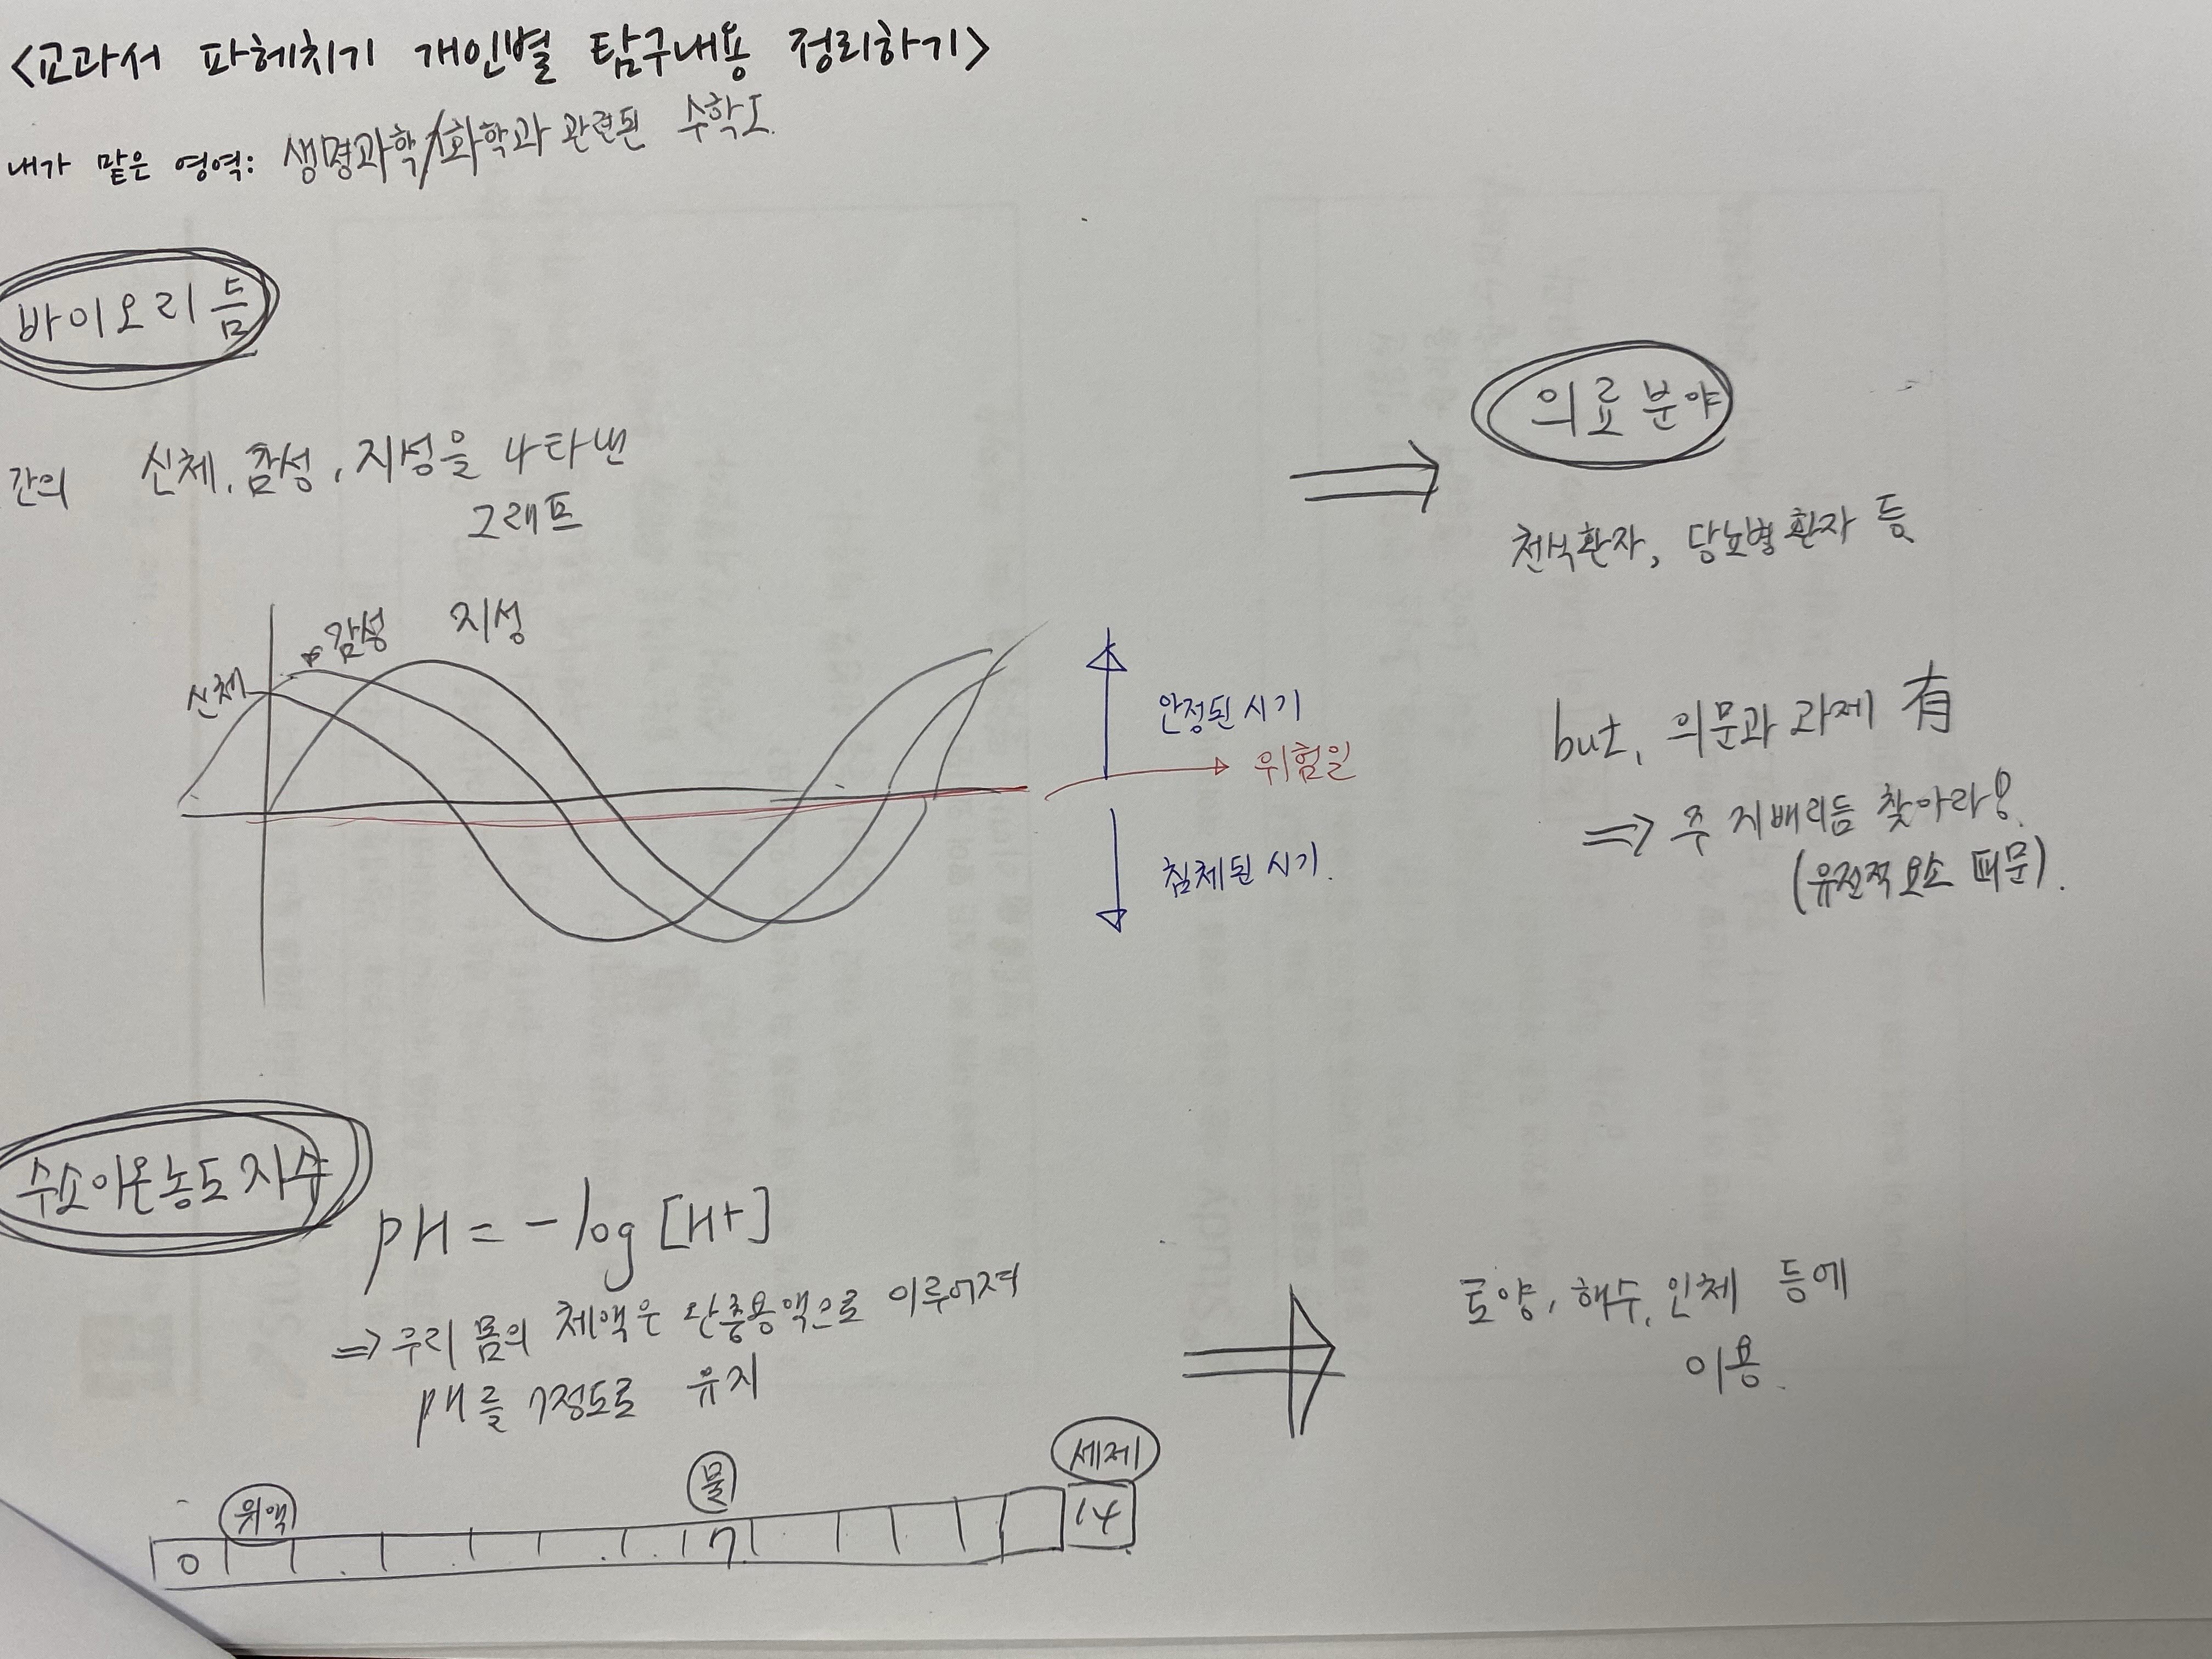 <교과서 파헤치기 개인별 탐구내용 정리하기>
내가 맡은 영역: 생명과학/화학과 관련된 수학도
바이오리듬
간의 신체, 감성, 지성을 나타낸
그래프
신체
감성
지성
안정된 시기
위험일
침체된 시기.
의료분야
천식환자, 당뇨병환자 등
but, 의문과 과제 有
⇒ 주 지배리듬 찾아라!
(유전적요소 때문).
수소이온농도 지수
pH = -log [H+]
⇒ 우리 몸의 체액은 완충용액으로 이루어져
pH를 7정도로 유지
토양, 해수, 인체 등에
이용.
위액
물
세제
0
7
14